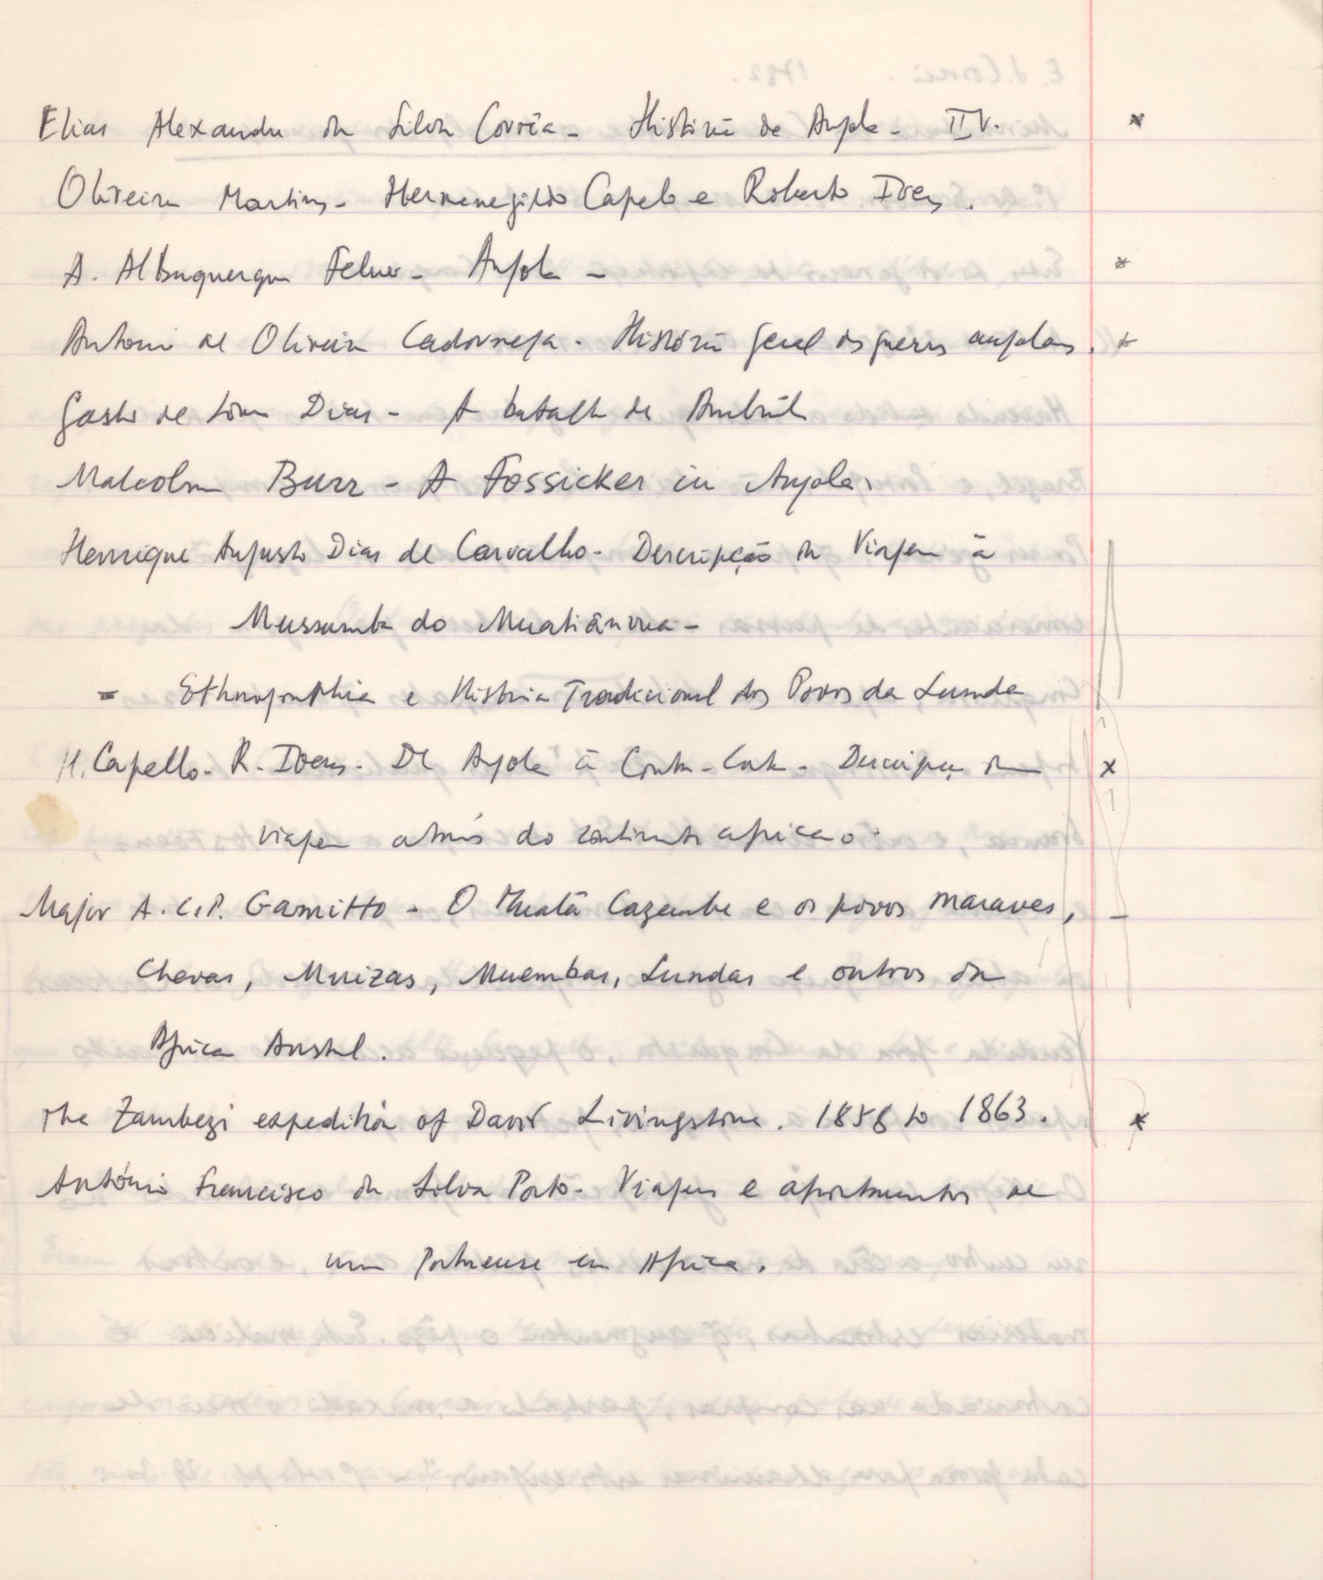 Elias Alexandre da Silva Corrêa - História de Angola - II V. *
Oliveira Martins - Hermenegildo Capelo e Roberto Ivens.
A. Albuquerque Felner - Angola - *
Antonio de Oliveira Cadornega - História geral das guerras angolanas. *
Gastão de Sousa Dias - A batalha de Ambuíla
Malcolm Burr - A Fossicker in Angola.
Henrique Augusto Dias de Carvalho - Descripção da Viagem à
Mussumba do Muatiânvua -
= Ethnographia e História Tradicional dos Povos da Lunda
H. Capello - R. Ivens - De Angola à Contra-Costa - Descripção da x
viagem através do continente africano.
Major A.C.P. Gamitto - O Muata Cazembe e os povos maraves, -
Chevas, Muizas, Muembas, Lundas e outros da
Africa Austral.
The Zambezi expedition of David Livingstone. 1858 to 1863. *
António Francisco da Silva Porto - Viagens e apontamentos de
um Portuense em Africa.